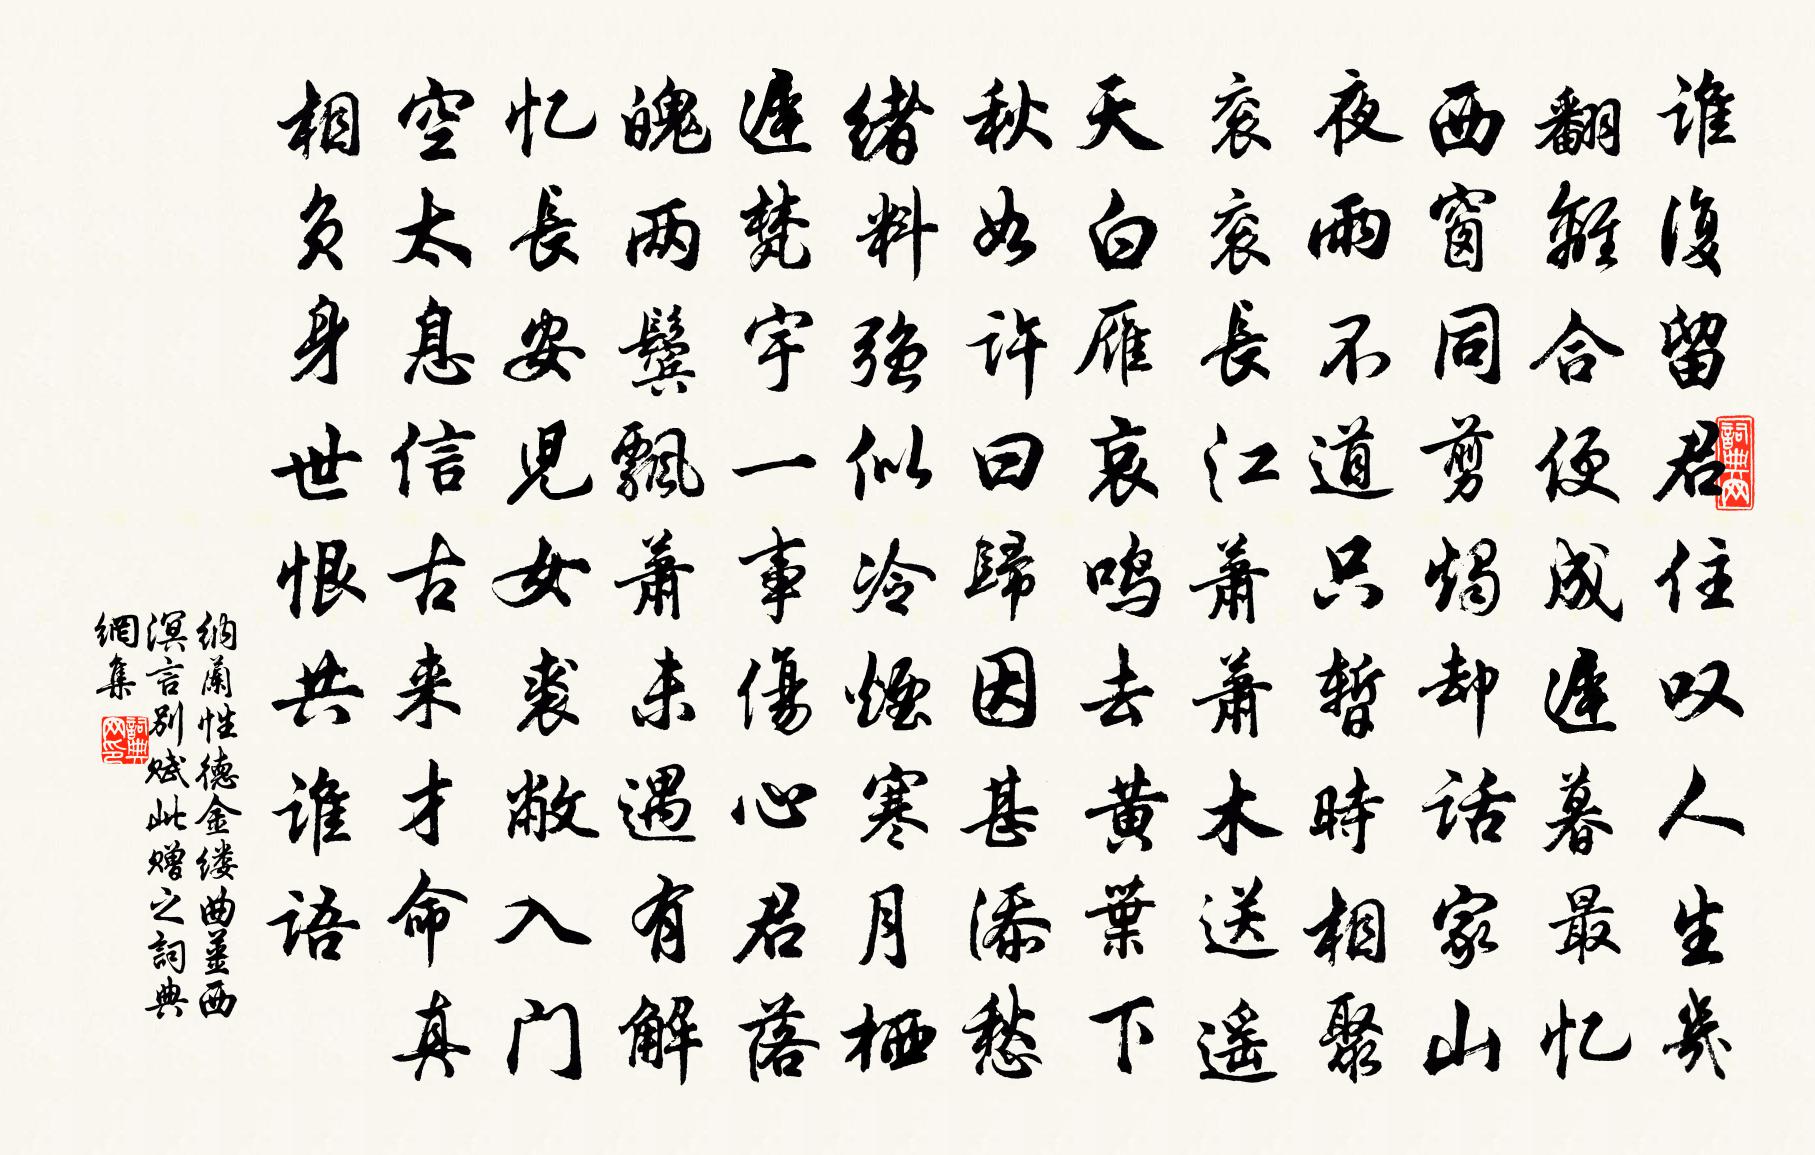 谁復留君住叹人生幾
翻離合便成遲暮最忆
西窗同剪燭却话家山
夜雨不道只暫時相聚
衮衮長江萧萧木送遥
天白雁哀鸣去黄葉下
秋如许曰歸因甚添愁
绪料强似冷煙寒月栖
遲梵宇一事傷心君落
魄两鬓飘萧未遇有解
忆長安児女裘敝入门
空太息信古来才命真
相负身世恨共谁语
纳蘭性德金缕曲薑西
溟言别赋此赠之詞典
網集
詞典网
詞典网印